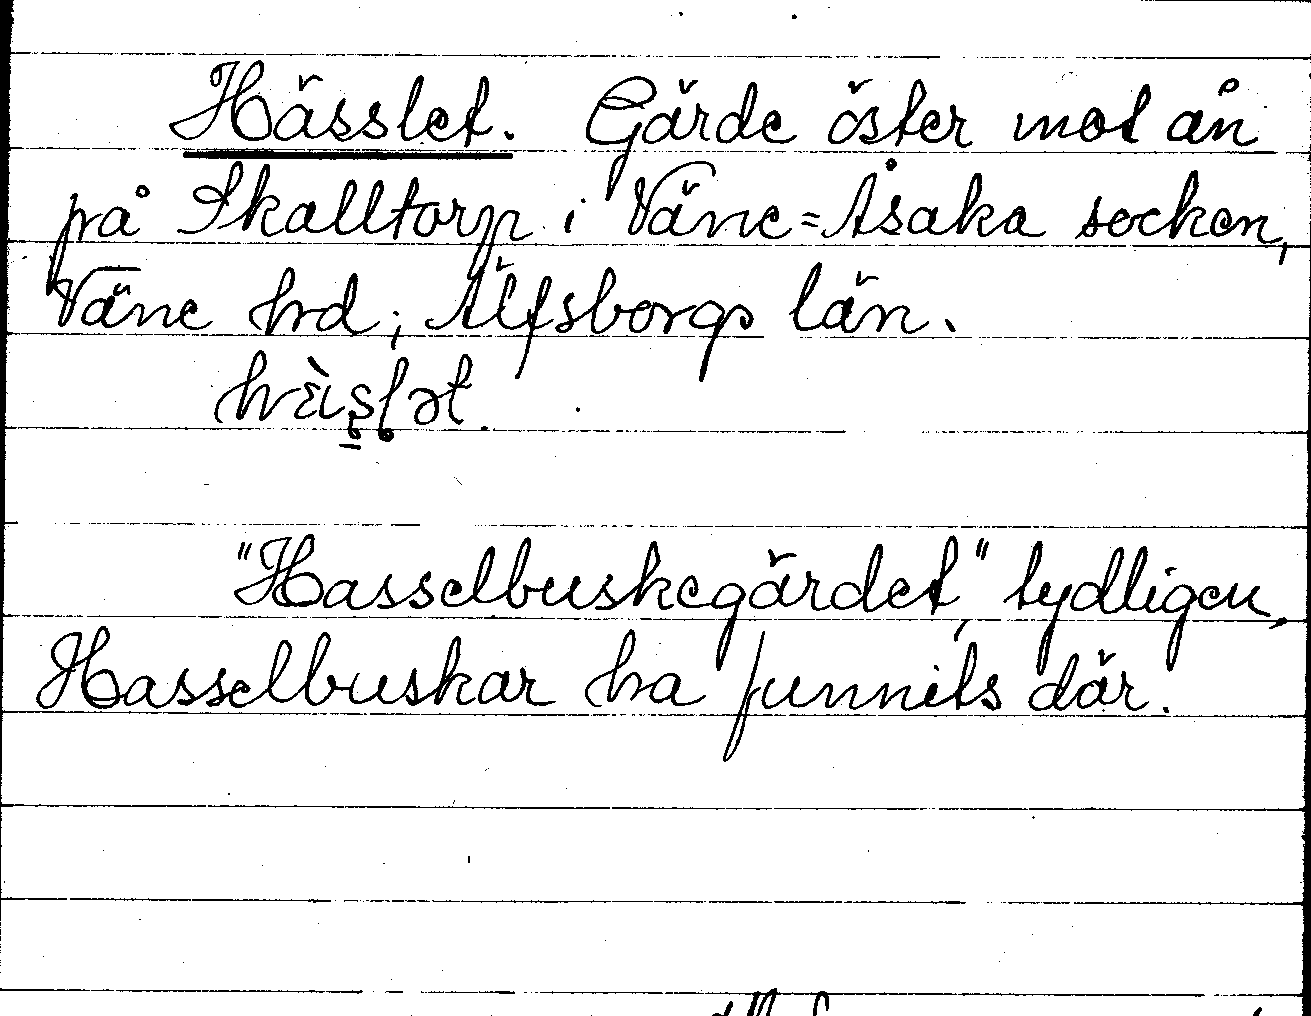 Hässlet. Gärde öster mot ån
på Skalltorp i Väne=Åsaka socken,
Väne hrd; Älfsborgs län.
"Hasselbuskegärdet", tydligen,
Hasselbuskar ha funnits där.